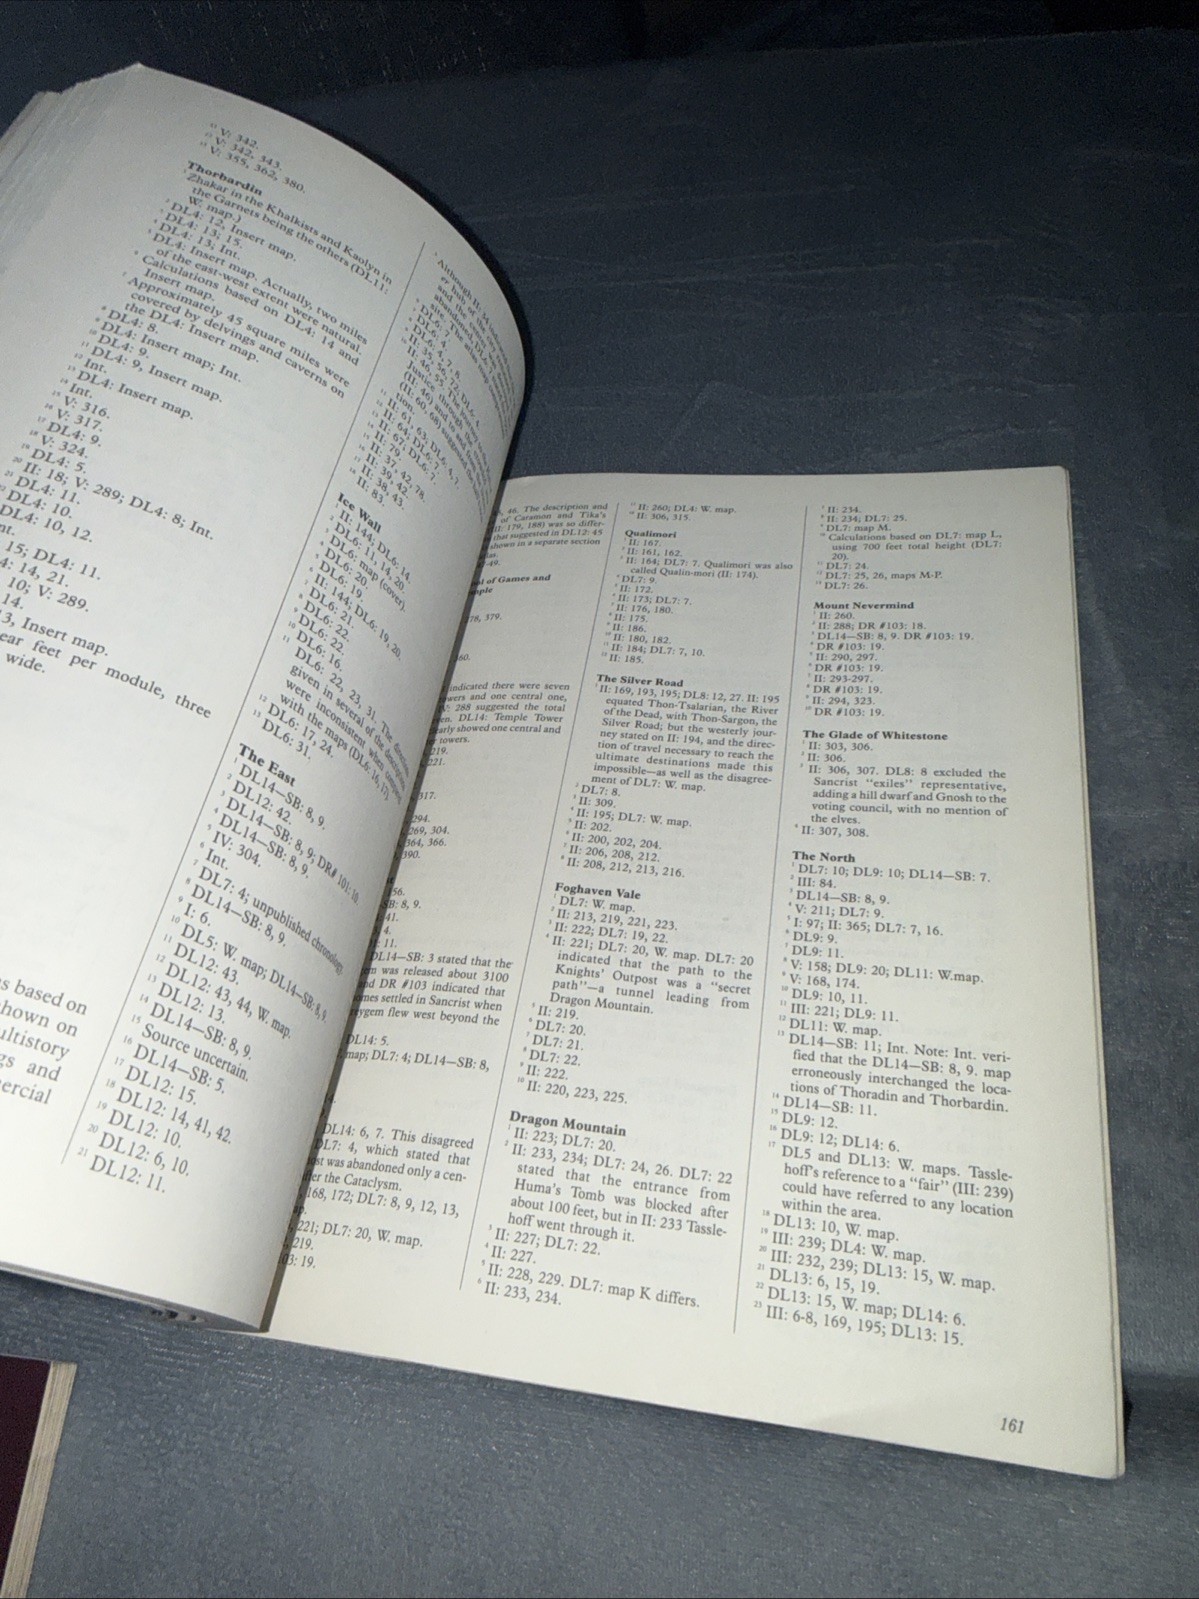 V: 342.
V: 342, 343.
V: 355, 362, 380.
Thorbardin
Zhakar in the Khalkists and Kaolyn in
the Garnets being the others (DL11:
W. map.)
DL4: 12, Insert map.
DL4: 13; 15.
DL4: 13; Int.
DL4: Insert map. Actually, two miles
of the east-west extent were natural.
Calculations based on DL4: 14 and
Insert map.
Approximately 45 square miles were
covered by delvings and caverns on
the DL4: Insert map.
DL4: 8.
DL4: Insert map; Int.
DL4: 9.
DL4: 9, Insert map.
Int.
DL4: Insert map.
Int.
V: 316.
V: 317.
DL4: 9.
V: 324.
DL4: 5.
II: 18; V: 289; DL4: 8; Int.
DL4: 11.
DL4: 10.
DL4: 10, 12.
15; DL4: 11.
14, 21.
10; V: 289.
14.
Insert map.
feet per module, three
wide.
based on
on
and
Ice Wall
II: 144; DL6: 14.
DL6: 11, 14, 20.
DL6: map (cover).
DL6: 20.
DL6: 19.
II: 144; DL6: 19, 20.
DL6: 21.
DL6: 22.
DL6: 22.
DL6: 16.
DL6: 22, 23, 31. The distances
given in several of the descriptions
were inconsistent when compared
with the maps (DL6: 16, 17).
DL6: 17, 24.
DL6: 31.
The East
DL14—SB: 8, 9.
DL12: 42.
DL14—SB: 8, 9; DR# 101: 10.
DL14—SB: 8, 9.
IV: 304.
Int.
DL7: 4; unpublished chronology.
DL14—SB: 8, 9.
I: 6.
DL5: W. map; DL14—SB: 8, 9.
DL12: 43.
DL12: 43, 44, W. map.
DL12: 13.
DL14—SB: 8, 9.
Source uncertain.
DL14—SB: 5.
DL12: 15.
DL12: 14, 41, 42.
DL12: 10.
DL12: 6, 10.
DL12: 11.
46. The description and
of Caramon and Tika's
II: 179, 188) was so differ-
that suggested in DL12: 45
shown in a separate section
of Games and
78, 379.
indicated there were seven
and one central one,
V: 288 suggested the total
DL14: Temple Tower
showed one central and
towers.
219.
221.
317.
294.
269, 304.
364, 366.
390.
56.
SB: 8, 9.
41.
4.
11.
DL14—SB: 3 stated that the
was released about 3100
and DR #103 indicated that
settled in Sancrist when
flew west beyond the
DL14: 5.
map; DL7: 4; DL14—SB: 8,
DL14: 6, 7. This disagreed
DL7: 4, which stated that
was abandoned only a cen-
the Cataclysm.
168, 172; DL7: 8, 9, 12, 13,
221; DL7: 20, W. map.
219.
103: 19.
II: 260; DL4: W. map.
II: 306, 315.
Qualimori
II: 167.
II: 161, 162.
II: 164; DL7: 7. Qualimori was also
called Qualin-mori (II: 174).
DL7: 9.
II: 172.
II: 173; DL7: 7.
II: 176, 180.
II: 175.
II: 186.
II: 180, 182.
II: 184; DL7: 7, 10.
II: 185.
The Silver Road
II: 169, 193, 195; DL8: 12, 27. II: 195
equated Thon-Tsalarian, the River
of the Dead, with Thon-Sargon, the
Silver Road; but the westerly jour-
ney stated on II: 194, and the direc-
tion of travel necessary to reach the
ultimate destinations made this
impossible—as well as the disagree-
ment of DL7: W. map.
DL7: 8.
II: 309.
II: 195; DL7: W. map.
II: 202.
II: 200, 202, 204.
II: 206, 208, 212.
II: 208, 212, 213, 216.
Foghaven Vale
DL7: W. map.
II: 213, 219, 221, 223.
II: 222; DL7: 19, 22.
II: 221; DL7: 20, W. map. DL7: 20
indicated that the path to the
Knights' Outpost was a "secret
path"—a tunnel leading from
Dragon Mountain.
II: 219.
DL7: 20.
DL7: 21.
DL7: 22.
II: 222.
II: 220, 223, 225.
Dragon Mountain
II: 223; DL7: 20.
II: 233, 234; DL7: 24, 26. DL7: 22
stated that the entrance from
Huma's Tomb was blocked after
about 100 feet, but in II: 233 Tassle-
hoff went through it.
II: 227; DL7: 22.
II: 227.
II: 228, 229. DL7: map K differs.
II: 233, 234.
II: 234.
II: 234; DL7: 25.
DL7: map M.
Calculations based on DL7: map L,
using 700 feet total height (DL7:
20).
DL7: 24.
DL7: 25, 26, maps M-P.
DL7: 26.
Mount Nevermind
II: 260.
II: 288; DR #103: 18.
DL14—SB: 8, 9. DR #103: 19.
DR #103: 19.
II: 290, 297.
DR #103: 19.
II: 293-297.
DR #103: 19.
II: 294, 323.
DR #103: 19.
The Glade of Whitestone
II: 303, 306.
II: 306.
II: 306, 307. DL8: 8 excluded the
Sancrist "exiles" representative,
adding a hill dwarf and Gnosh to the
voting council, with no mention of
the elves.
II: 307, 308.
The North
DL7: 10; DL9: 10; DL14—SB: 7.
III: 84.
DL14—SB: 8, 9.
V: 211; DL7: 9.
I: 97; II: 365; DL7: 7, 16.
DL9: 9.
DL9: 11.
V: 158; DL9: 20; DL11: W.map.
V: 168, 174.
DL9: 10, 11.
III: 221; DL9: 11.
DL11: W. map.
DL14—SB: 11; Int. Note: Int. veri-
fied that the DL14—SB: 8, 9. map
erroneously interchanged the loca-
tions of Thoradin and Thorbardin.
DL14—SB: 11.
DL9: 12.
DL9: 12; DL14: 6.
DL5 and DL13: W. maps. Tassle-
hoff's reference to a "fair" (III: 239)
could have referred to any location
within the area.
DL13: 10, W. map.
III: 239; DL4: W. map.
III: 232, 239; DL13: 15, W. map.
DL13: 6, 15, 19.
DL13: 15, W. map; DL14: 6.
III: 6-8, 169, 195; DL13: 15.
161